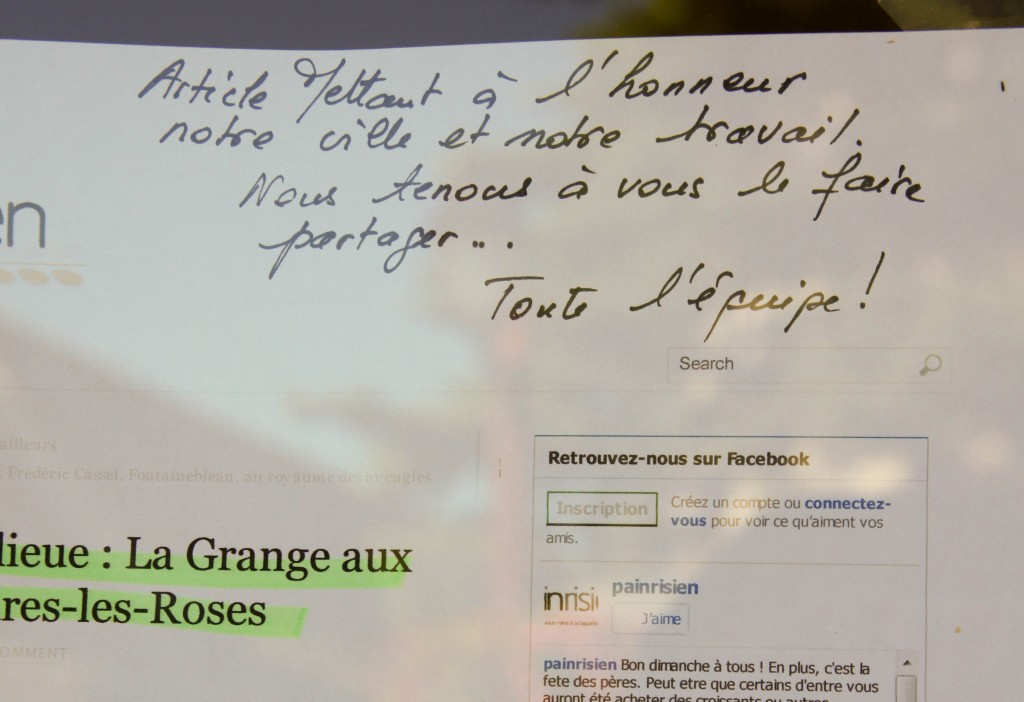 Article Mettant à l'honneur
notre ville et notre travail.
Nous tenons à vous le faire
partager...
Toute l'équipe !
en
Search
ailleurs
: Frédéric Cassel, Fontainebleau, au royaume des aveugles
lieue : La Grange aux
res-les-Roses
OMMENT
Retrouvez-nous sur Facebook
Inscription
Créez un compte ou connectez-
vous pour voir ce qu'aiment vos
amis.
inrisi
painrisien
J'aime
painrisien Bon dimanche à tous ! En plus, c'est la
fete des pères. Peut etre que certains d'entre vous
auront été acheter des croissants ou autres